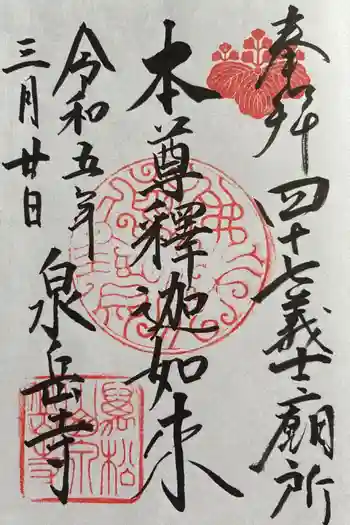 奉拝 四十七義士廟所
本尊釋迦如来
令和五年
三月廿日
泉岳寺